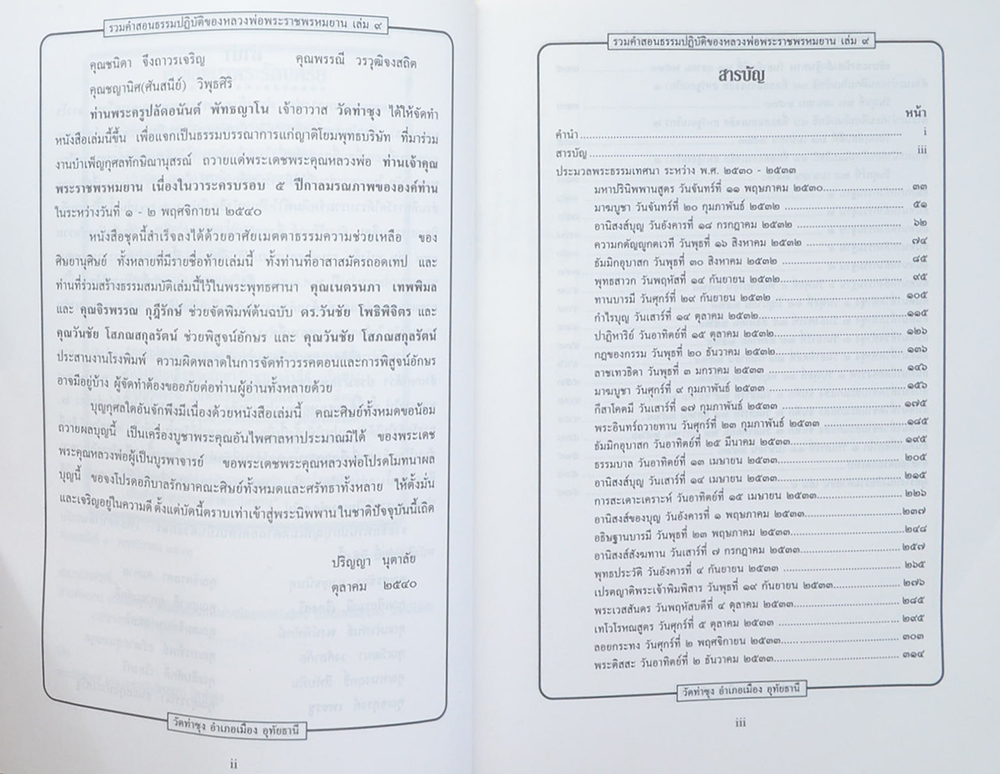 รวมคำสอนธรรมปฏิบัติของหลวงพ่อพระราชพรหมยาน เล่ม ๙
คุณชนิดา จึงถาวรเจริญ คุณพรรณี วรวุฒิจงสถิต
คุณชญานิศ(ศันสนีย์) วิพุธศิริ
ท่านพระครูปลัดอนันต์ พัทธญาโน เจ้าอาวาส วัดท่าซุง ได้ให้จัดทำ
หนังสือเล่มนี้ขึ้น เพื่อแจกเป็นธรรมบรรณาการแก่ญาติโยมพุทธบริษัท ที่มาร่วม
งานบำเพ็ญกุศลทักษิณานุสรณ์ ถวายแด่พระเดชพระคุณหลวงพ่อ ท่านเจ้าคุณ
พระราชพรหมยาน เนื่องในวาระครบรอบ ๕ ปีกาลมรณภาพขององค์ท่าน
ในระหว่างวันที่ ๑ - ๒ พฤศจิกายน ๒๕๔๐
หนังสือชุดนี้สำเร็จลงได้ด้วยอาศัยเมตตาธรรมความช่วยเหลือ ของ
ศิษยานุศิษย์ ทั้งหลายที่มีรายชื่อท้ายเล่มนี้ ทั้งท่านที่อาสาสมัครถอดเทป และ
ท่านที่ร่วมสร้างธรรมสมบัติเล่มนี้ไว้ในพระพุทธศาสนา คุณเนตรนภา เทพพิมล
และ คุณจิรพรรณ กุฎีรักษ์ ช่วยจัดพิมพ์ต้นฉบับ ดร.วันชัย โพธิพิจิตร และ
คุณวันชัย โสภณสกุลรัตน์ ช่วยพิสูจน์อักษร และ คุณวันชัย โสภณสกุลรัตน์
ประสานงานโรงพิมพ์ ความผิดพลาดในการจัดทำวรรคตอนและการพิสูจน์อักษร
อาจมีอยู่บ้าง ผู้จัดทำต้องขออภัยต่อท่านผู้อ่านทั้งหลายด้วย
บุญกุศลใดอันจักพึงมีเนื่องด้วยหนังสือเล่มนี้ คณะศิษย์ทั้งหมดขอน้อม
ถวายผลบุญนี้ เป็นเครื่องบูชาพระคุณอันไพศาลหาประมาณมิได้ ของพระเดช
พระคุณหลวงพ่อผู้เป็นบูรพาจารย์ ขอพระเดชพระคุณหลวงพ่อโปรดโมทนาผล
บุญนี้ ขอจงโปรดอภิบาลรักษาคณะศิษย์ทั้งหมดและศรัทธาทั้งหลาย ให้ตั้งมั่น
และเจริญอยู่ในความดี ตั้งแต่บัดนี้ตราบเท่าเข้าสู่พระนิพพานในชาติปัจจุบันนี้เถิด
ปริญญา นุตาลัย
ตุลาคม ๒๕๔๐
วัดท่าซุง อำเภอเมือง อุทัยธานี
ii
รวมคำสอนธรรมปฏิบัติของหลวงพ่อพระราชพรหมยาน เล่ม ๙
สารบัญ
หน้า
คำนำ i
สารบัญ iii
ประมวลพระธรรมเทศนา ระหว่าง พ.ศ. ๒๕๓๐ - ๒๕๓๓
มหาปรินิพพานสูตร วันจันทร์ที่ ๑๑ พฤษภาคม ๒๕๓๐ ๓๓
มาฆบูชา วันจันทร์ที่ ๒๐ กุมภาพันธ์ ๒๕๓๒ ๕๑
อานิสงส์บุญ วันอังคารที่ ๑๘ กรกฎาคม ๒๕๓๒ ๖๒
ความกตัญญูกตเวที วันพุธที่ ๑๖ สิงหาคม ๒๕๓๒ ๗๔
ธัมมิกอุบาสก วันพุธที่ ๓๐ สิงหาคม ๒๕๓๒ ๘๕
พุทธสาวก วันพฤหัสที่ ๑๔ กันยายน ๒๕๓๒ ๙๕
ทานบารมี วันศุกร์ที่ ๒๙ กันยายน ๒๕๓๒ ๑๐๕
กำไรบุญ วันเสาร์ที่ ๑๔ ตุลาคม ๒๕๓๒ ๑๑๕
ปาฏิหาริย์ วันอาทิตย์ที่ ๑๕ ตุลาคม ๒๕๓๒ ๑๒๖
กฎของกรรม วันพุธที่ ๒๐ ธันวาคม ๒๕๓๒ ๑๓๖
ลาชเทวธิดา วันพุธที่ ๓ มกราคม ๒๕๓๓ ๑๔๖
มาฆบูชา วันศุกร์ที่ ๙ กุมภาพันธ์ ๒๕๓๓ ๑๕๖
กีสาโคตมี วันเสาร์ที่ ๑๗ กุมภาพันธ์ ๒๕๓๓ ๑๗๕
พระอินทร์ถวายทาน วันศุกร์ที่ ๒๓ กุมภาพันธ์ ๒๕๓๓ ๑๘๕
ธัมมิกอุบาสก วันอาทิตย์ที่ ๒๕ มีนาคม ๒๕๓๓ ๑๙๕
ธรรมบาล วันอาทิตย์ที่ ๑๓ เมษายน ๒๕๓๓ ๒๐๕
อานิสงส์บุญ วันเสาร์ที่ ๑๔ เมษายน ๒๕๓๓ ๒๑๕
การสะเดาะเคราะห์ วันอาทิตย์ที่ ๑๕ เมษายน ๒๕๓๓ ๒๒๖
อานิสงส์ของบุญ วันอังคารที่ ๑ พฤษภาคม ๒๕๓๓ ๒๓๗
อธิษฐานบารมี วันพุธที่ ๒๓ พฤษภาคม ๒๕๓๓ ๒๔๘
อานิสงส์สังฆทาน วันเสาร์ที่ ๗ กรกฎาคม ๒๕๓๓ ๒๕๗
พุทธประวัติ วันอังคารที่ ๔ กันยายน ๒๕๓๓ ๒๖๕
เปรตญาติพระเจ้าพิมพิสาร วันพุธที่ ๑๙ กันยายน ๒๕๓๓ ๒๗๖
พระเวสสันดร วันพฤหัสบดีที่ ๔ ตุลาคม ๒๕๓๓ ๒๘๕
เทโวโรหณสูตร วันศุกร์ที่ ๕ ตุลาคม ๒๕๓๓ ๒๙๕
ลอยกระทง วันศุกร์ที่ ๒ พฤศจิกายน ๒๕๓๓ ๓๐๓
พระติสสะ วันอาทิตย์ที่ ๒ ธันวาคม ๒๕๓๓ ๓๑๔
วัดท่าซุง อำเภอเมือง อุทัยธานี
iii